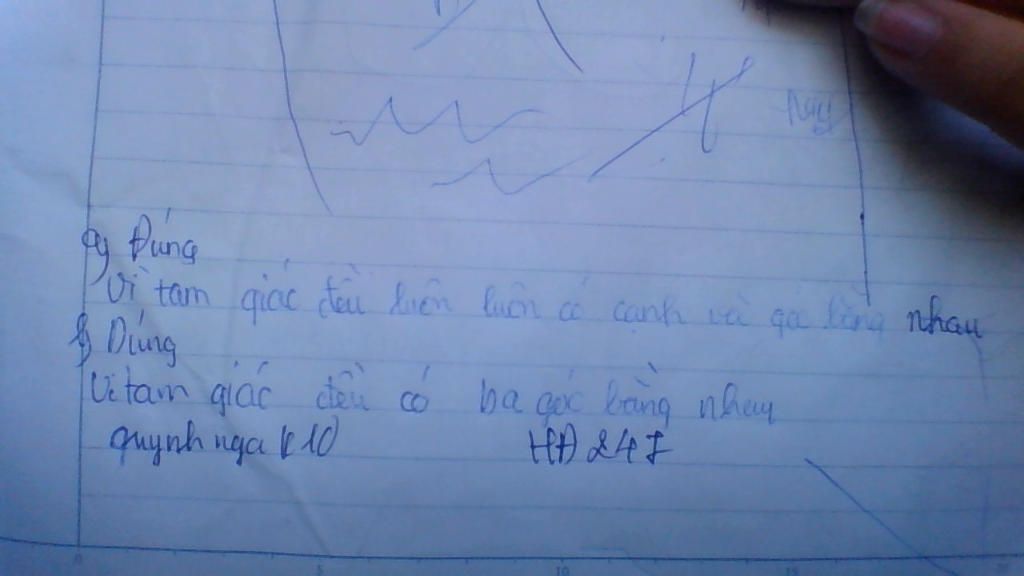 a) Đúng
Vì tam giác đều luôn luôn có cạnh và góc bằng nhau
b) Đúng
Vì tam giác đều có ba góc bằng nhau
quynh nga k10 HĐ 247
0 5 10 15 20